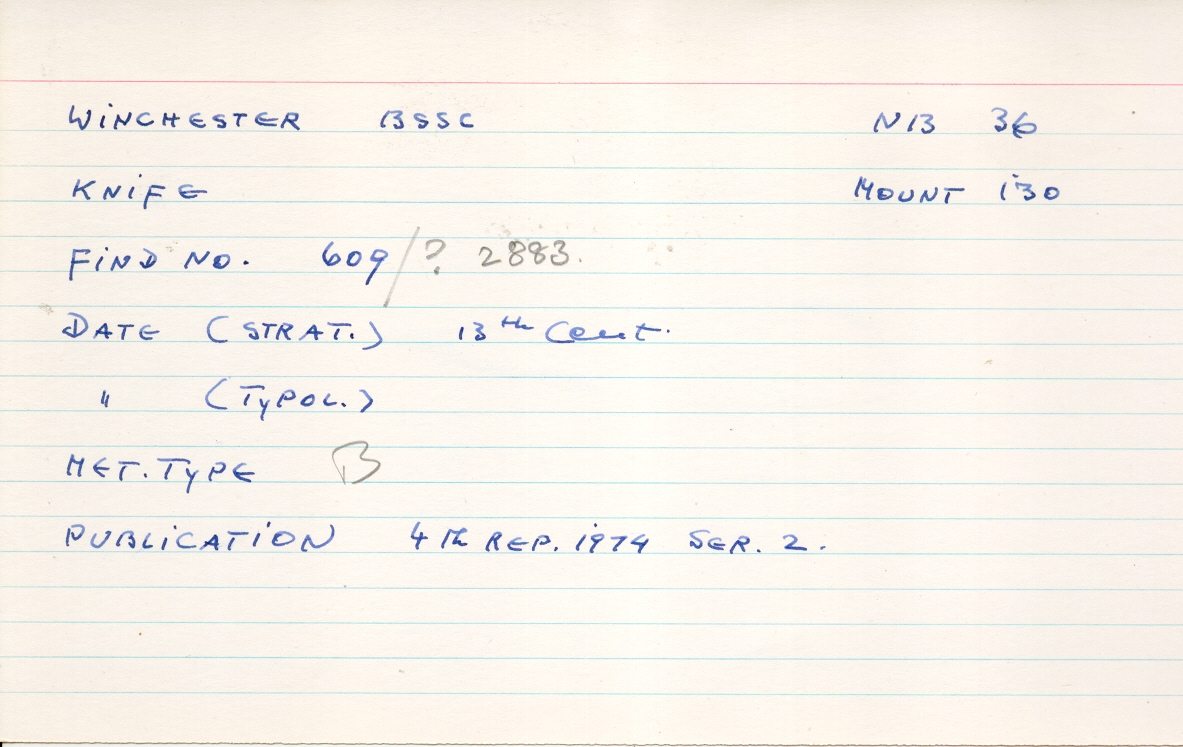 WINCHESTER BSSC NB 36
KNIFE MOUNT 130
FIND NO. 609/? 2883.
DATE (STRAT.) 13th Cent.
" (TYPOL.)
MET. TYPE B
PUBLICATION 4th REP. 1974 SER. 2.